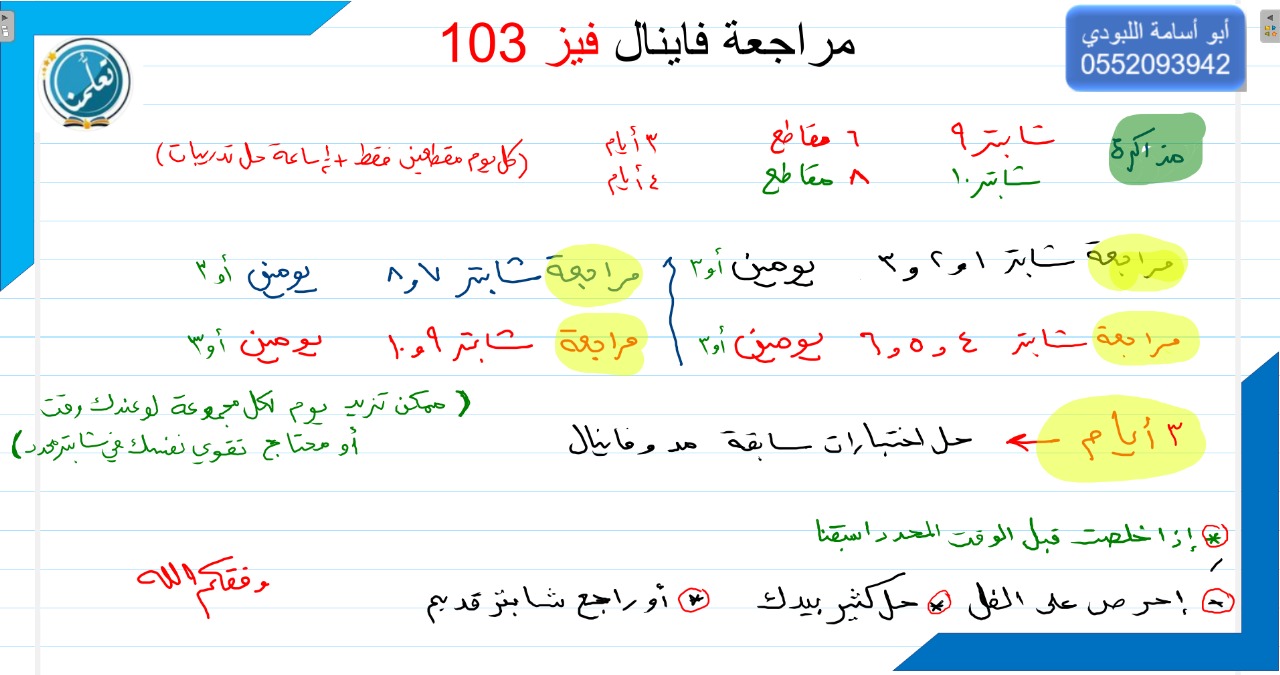 مراجعة فاينال فيز 103
أبو أسامة اللبودي
0552093942
تعلمنا
مذاكرة شابتر ٩ ٦ مقاطع ٣ أيام
شابتر ١٠ ٨ مقاطع ٤ أيام
(كل يوم مقطعين فقط + إساعة حل تدريبات)
مراجعة شابتر ١ و ٢ و ٣ يومين أو ٣
مراجعة شابتر ٤ و ٥ و ٦ يومين أو ٣
مراجعة شابتر ٧ و ٨ يومين أو ٣
مراجعة شابتر ٩ و ١٠ يومين أو ٣
(ممكن تزيد يوم لكل مجموعة لو عندك وقت
أو محتاج تقوي نفسك في شابتر محدد)
٣ أيام ← حل اختبارات سابقة مد وفاينال
* إذا خلصت قبل الوقت المحدد اسبقنا
- إحرص على الفل * حل كثير بيدك * أو راجع شابتر قديم
وفقكم الله